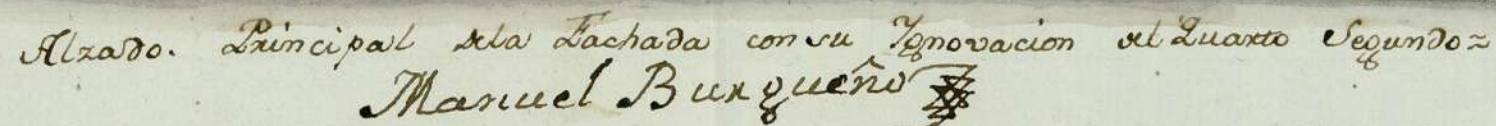 Alzado. Principal dela Fachada con su Ygnovacion del Quarto Segundo=
Manuel Burgueño